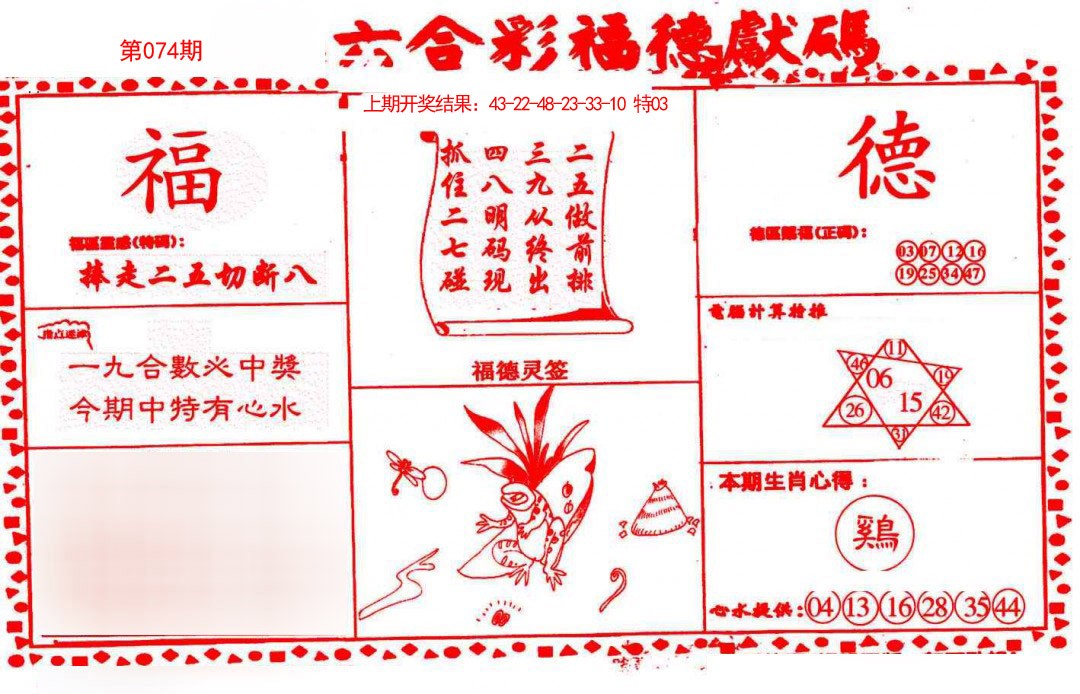 第074期
六合彩福德獻碼
上期开奖结果：43-22-48-23-33-10 特03
福
福區靈感(特码)：
捧走二五切断八
一九合數必中獎
今期中特有心水
二五做前排
三九从终出
四八明码现
抓住二七碰
福德灵签
德
德區賜福(正碼)：
03 07 12 16
19 25 34 47
電腦計算精推
11
46 06 19
26 15 42
31
本期生肖心得：
鷄
心水提供：04 13 16 28 35 44